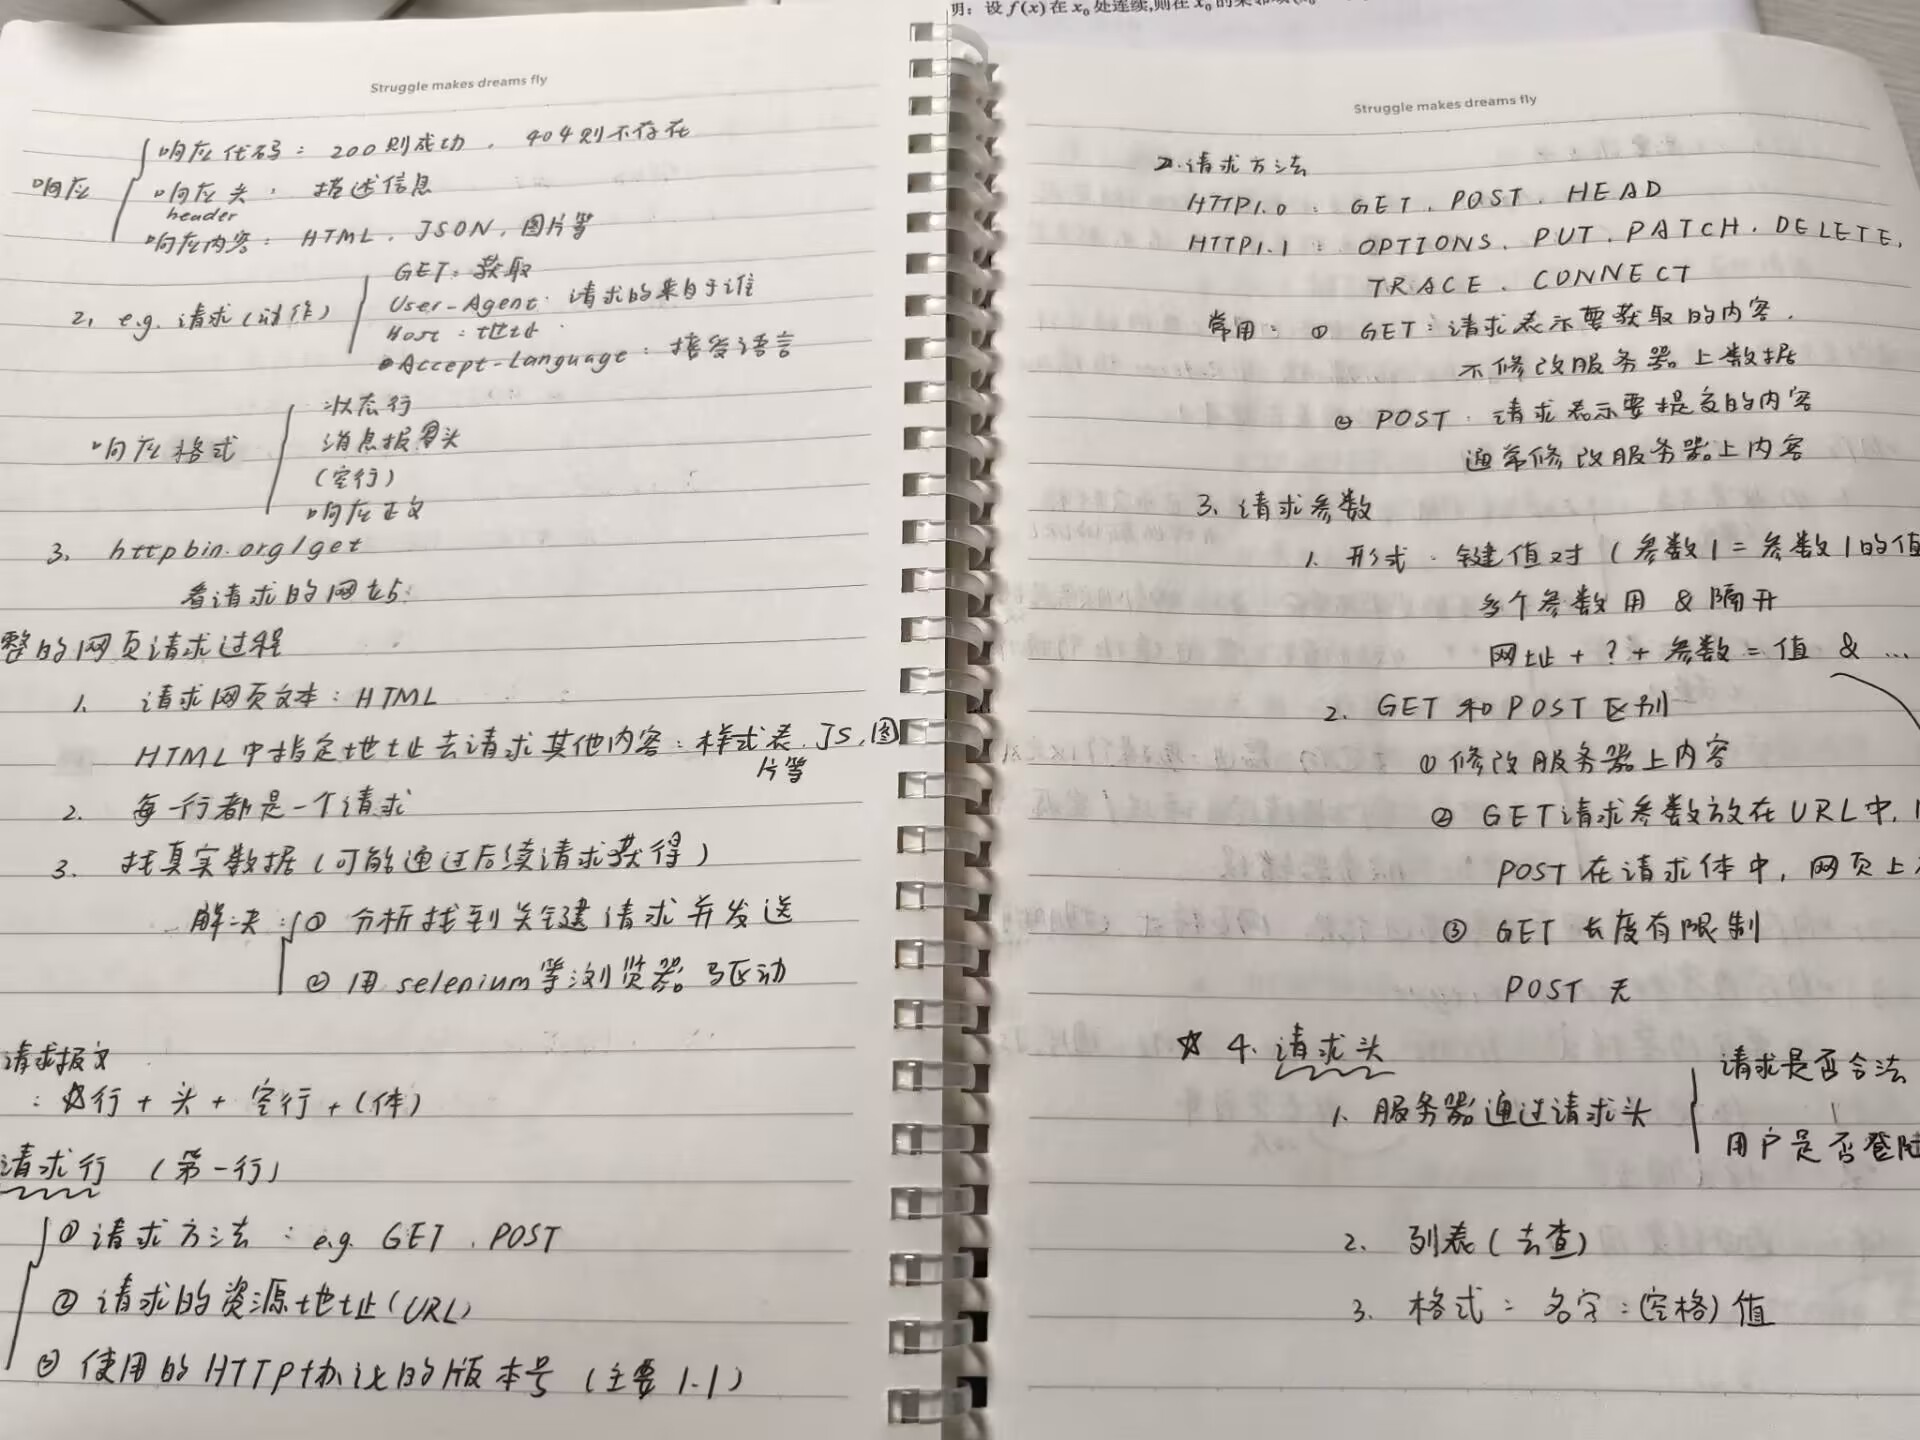 明：设f(x)在x₀处连续,则在x₀的某邻域
Struggle makes dreams fly
响应代码：200则成功．404则不存在
响应
响应头：描述信息
header
响应内容：HTML．JSON．图片等
2. e.g. 请求(动作)
GET：获取
User-Agent：请求的来自于谁
Host：地址
Accept-Language：接受语言
响应格式
状态行
消息报头
(空行)
响应正文
3. httpbin.org/get
看请求的网站
整的网页请求过程
1. 请求网页文本：HTML
HTML中指定地址去请求其他内容：样式表．JS．图
片等
2. 每一行都是一个请求
3. 找真实数据(可能通过后续请求获得)
解决：① 分析找到关键请求并发送
② 用selenium等浏览器驱动
请求报文
：行+头+空行+(体)
请求行 (第一行)
① 请求方法：e.g. GET．POST
② 请求的资源地址(URL)
③ 使用的HTTP协议的版本号 (主要1.1)
Struggle makes dreams fly
2. 请求方法
HTTP1.0：GET．POST．HEAD
HTTP1.1：OPTIONS．PUT．PATCH．DELETE．
TRACE．CONNECT
常用：① GET：请求表示要获取的内容．
不修改服务器上数据
② POST．请求表示要提交的内容
通常修改服务器上内容
3. 请求参数
1. 形式．键值对(参数1=参数1的值
多个参数用&隔开
网址+?+参数=值 & ...
2. GET和POST区别
① 修改服务器上内容
② GET请求参数放在URL中，
POST在请求体中，网页上
③ GET 长度有限制
POST 无
☆ 4. 请求头
1. 服务器通过请求头
请求是否合法
用户是否登陆
2. 列表(去查)
3. 格式：名字：(空格)值